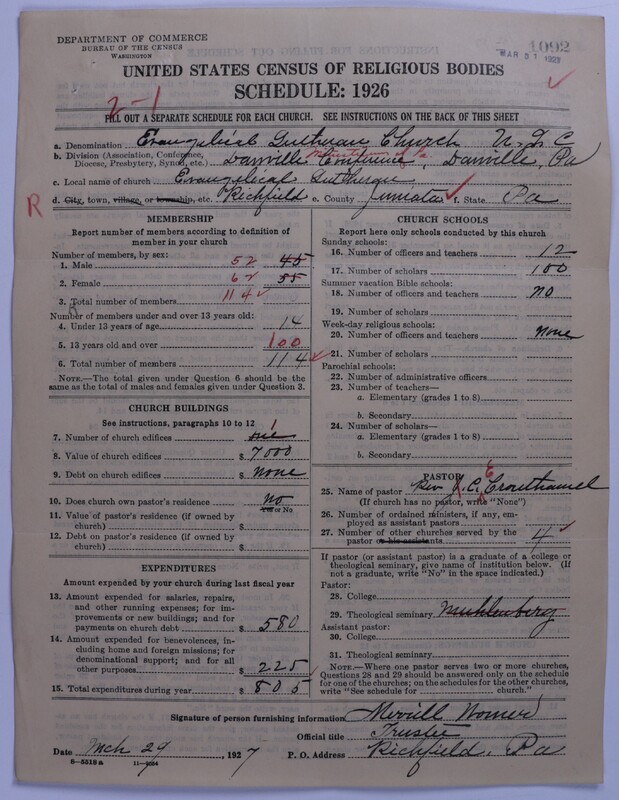 DEPARTMENT OF COMMERCE
BUREAU OF THE CENSUS
WASHINGTON
1092
MAR 31 1927
UNITED STATES CENSUS OF RELIGIOUS BODIES
SCHEDULE: 1926
2-1
FILL OUT A SEPARATE SCHEDULE FOR EACH CHURCH. SEE INSTRUCTIONS ON THE BACK OF THIS SHEET
a. Denomination Evangelical Lutheran Church U.L.C
b. Division (Association, Conference, Diocese, Presbytery, Synod, etc.) Danville Conference, Danville, Pa
c. Local name of church Evangelical Lutheran
R
d. City, town, village, or township, etc. Richfield e. County Juniata f. State Pa
MEMBERSHIP
Report number of members according to definition of
member in your church
Number of members, by sex:
1. Male 52 45
2. Female 62 55
3. Total number of members 114
Number of members under and over 13 years old:
4. Under 13 years of age 14
5. 13 years old and over 100
6. Total number of members 114
NOTE.—The total given under Question 6 should be the
same as the total of males and females given under Question 3.
CHURCH BUILDINGS
See instructions, paragraphs 10 to 12
7. Number of church edifices 1
8. Value of church edifices $ 7000
9. Debt on church edifices $ None
10. Does church own pastor's residence? No
Yes or No
11. Value of pastor's residence (if owned by
church) $
12. Debt on pastor's residence (if owned by
church) $
EXPENDITURES
Amount expended by your church during last fiscal year
13. Amount expended for salaries, repairs,
and other running expenses; for im-
provements or new buildings; and for
payments on church debt $ 580
14. Amount expended for benevolences, in-
cluding home and foreign missions; for
denominational support; and for all
other purposes $ 225
15. Total expenditures during year $ 805
CHURCH SCHOOLS
Report here only schools conducted by this church
Sunday schools:
16. Number of officers and teachers 12
17. Number of scholars 100
Summer vacation Bible schools:
18. Number of officers and teachers no
19. Number of scholars
Week-day religious schools:
20. Number of officers and teachers none
21. Number of scholars
Parochial schools:
22. Number of administrative officers
23. Number of teachers—
a. Elementary (grades 1 to 8)
b. Secondary
24. Number of scholars—
a. Elementary (grades 1 to 8)
b. Secondary
PASTOR
25. Name of pastor Rev J. C. E Crouthamel
(If church has no pastor, write "None")
26. Number of ordained ministers, if any, em-
ployed as assistant pastors
27. Number of other churches served by the
pastor or his assistants 4
If pastor (or assistant pastor) is a graduate of a college or
theological seminary, give name of institution below. (If
not a graduate, write "No" in the space indicated.)
Pastor:
28. College
29. Theological seminary Muhlenberg
Assistant pastor:
30. College
31. Theological seminary
NOTE.—Where one pastor serves two or more churches,
Questions 28 and 29 should be answered only on the schedule
for one of the churches; on the schedules for the other churches,
write "See schedule for church."
Signature of person furnishing information Merrill Womer
Official title Trustee
Date Mch 29, 1927 P. O. Address Richfield, Pa
8-5518a